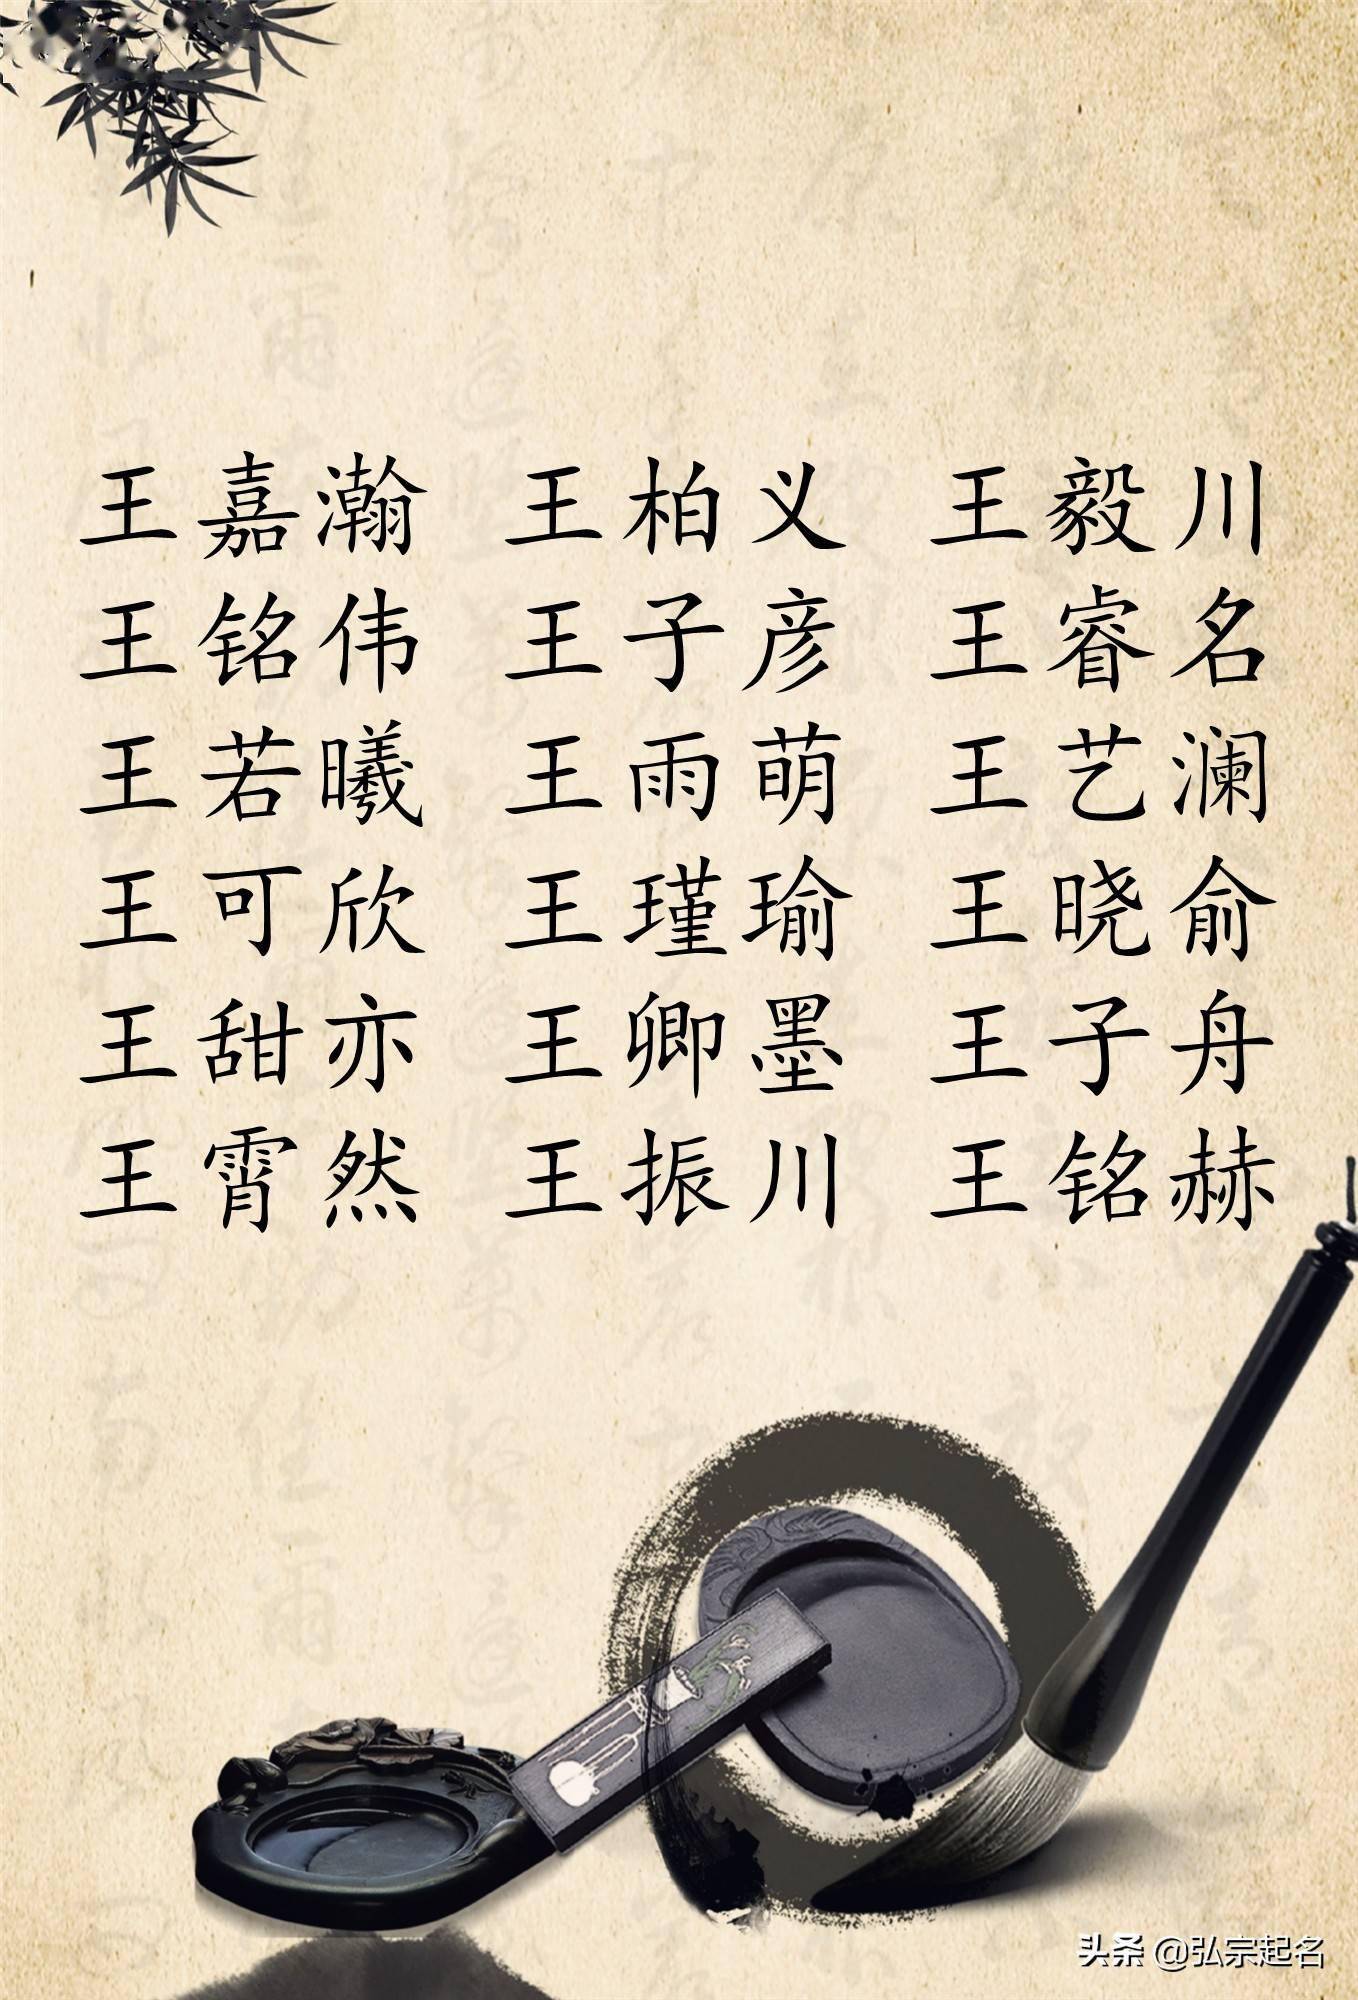 王嘉瀚 王柏义 王毅川
王铭伟 王子彦 王睿名
王若曦 王雨萌 王艺澜
王可欣 王瑾瑜 王晓俞
王甜亦 王卿墨 王子舟
王霄然 王振川 王铭赫
头条 @弘宗起名